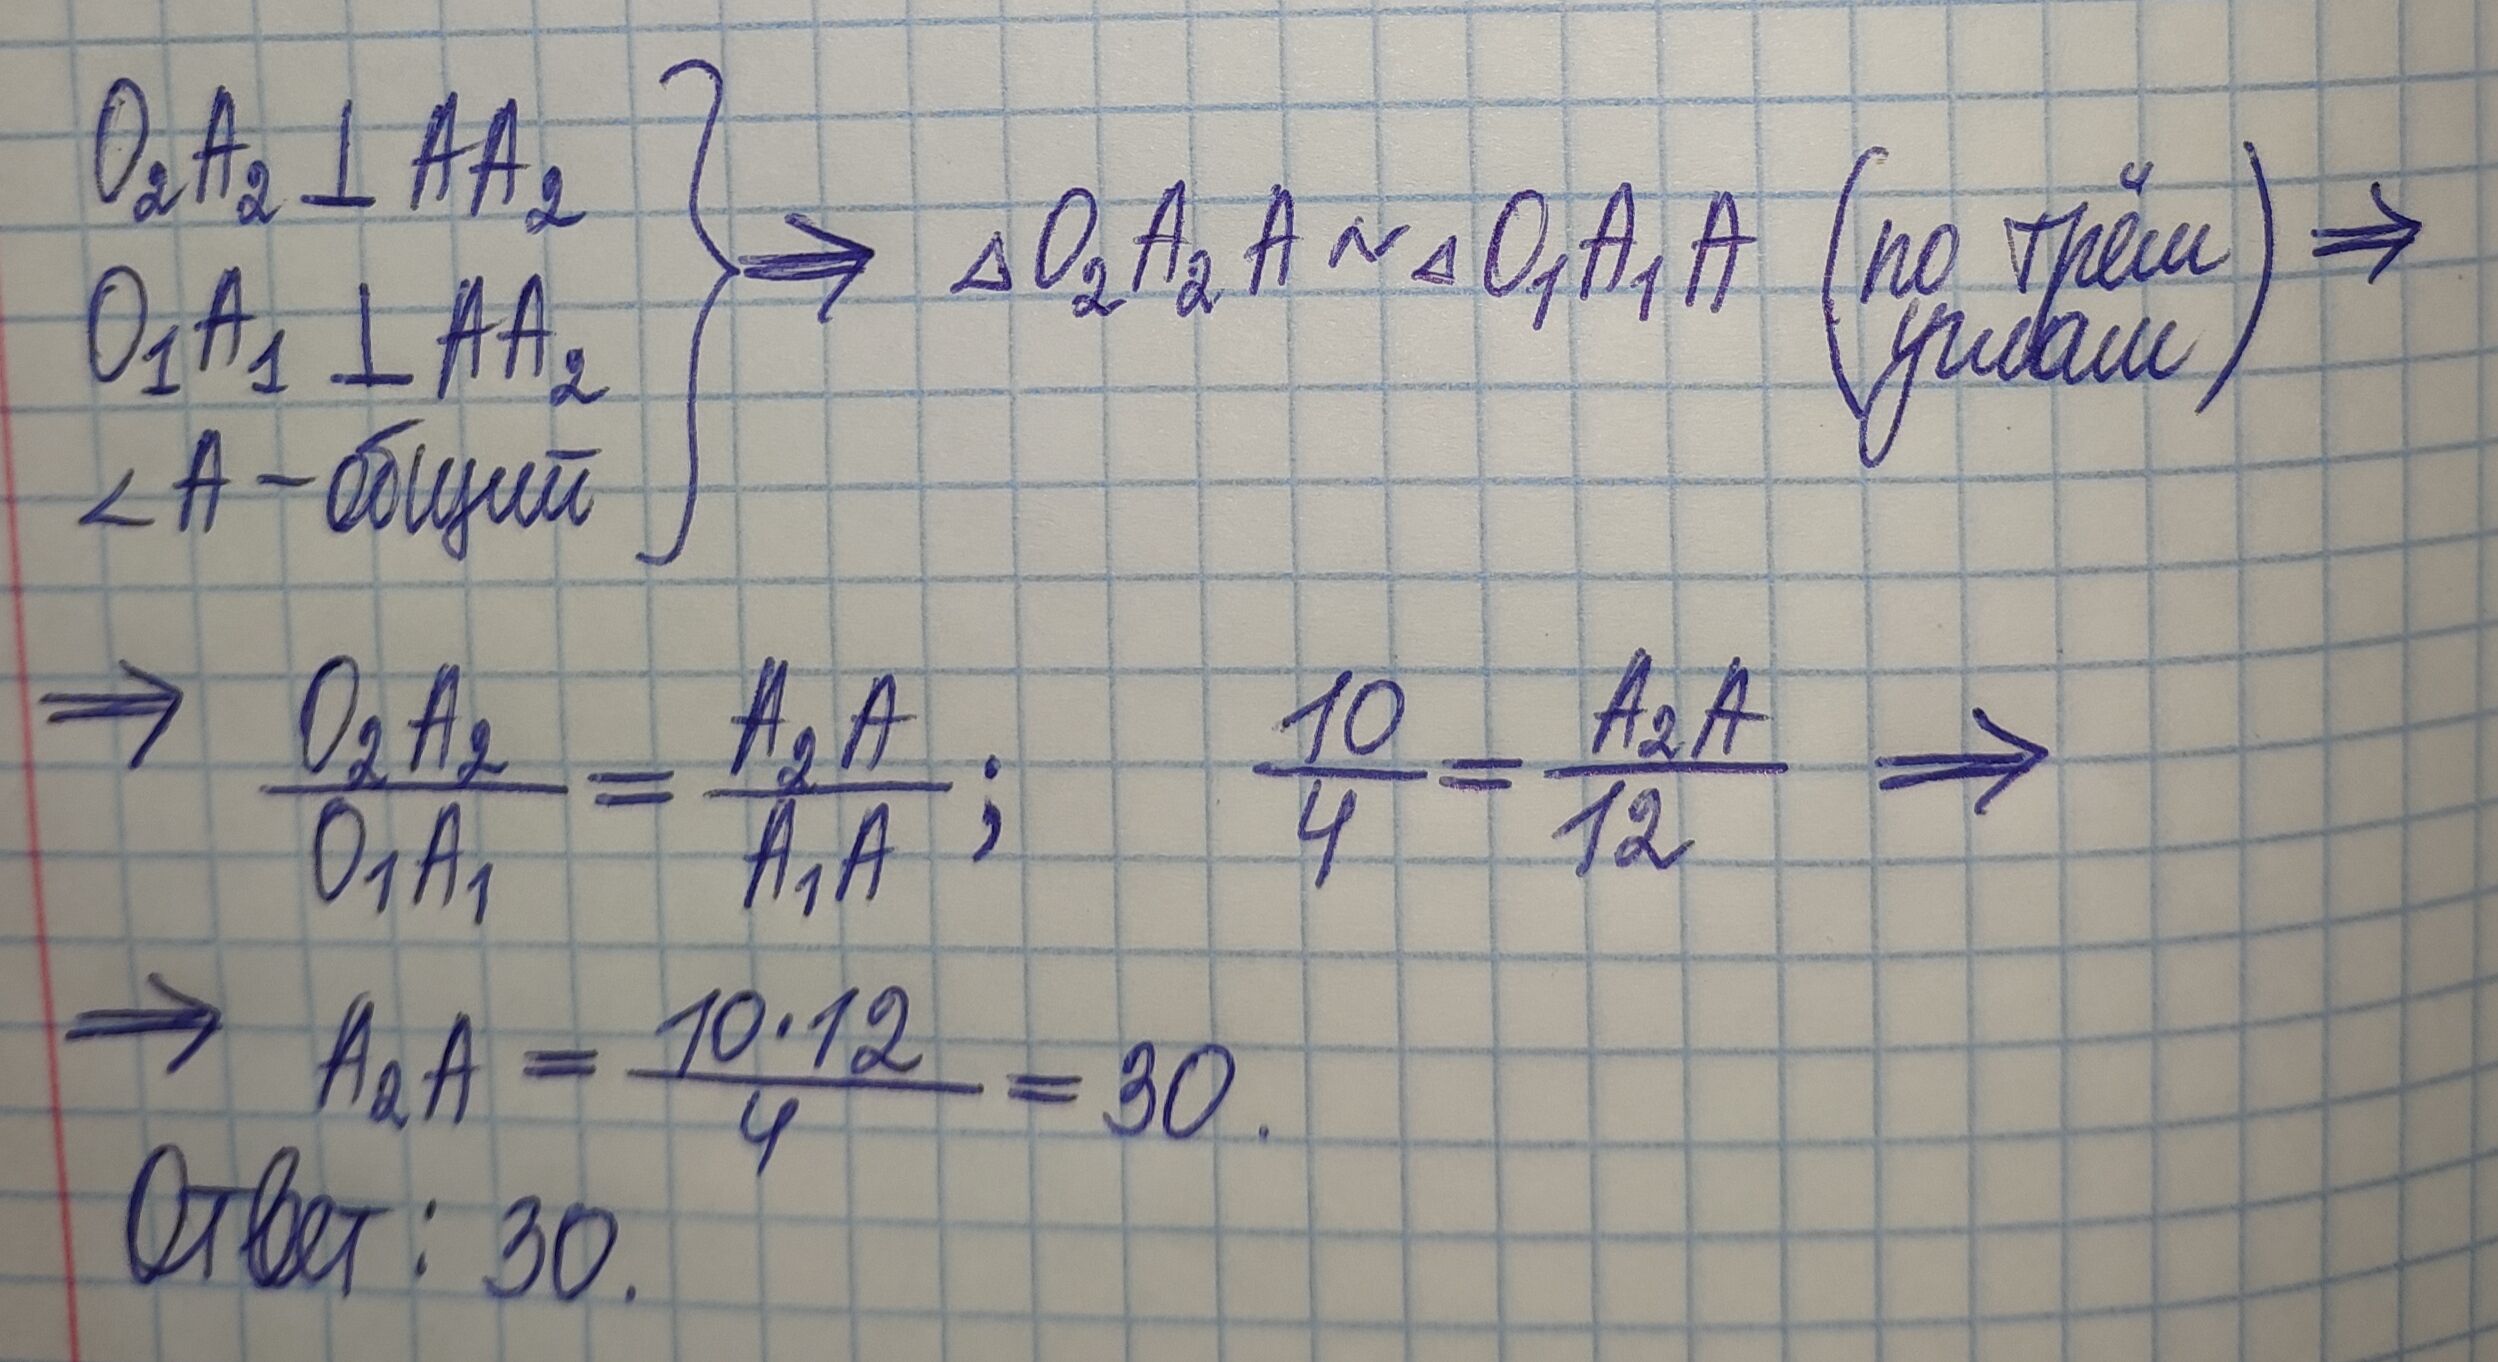 O₂A₂ ⊥ AA₂
O₁A₁ ⊥ AA₂
∠A – общий
⇒ △O₂A₂A ~ △O₁A₁A (по трём углам) ⇒
⇒ O₂A₂/O₁A₁ = A₂A/A₁A ; 10/4 = A₂A/12 ⇒
⇒ A₂A = 10·12/4 = 30.
Ответ: 30.